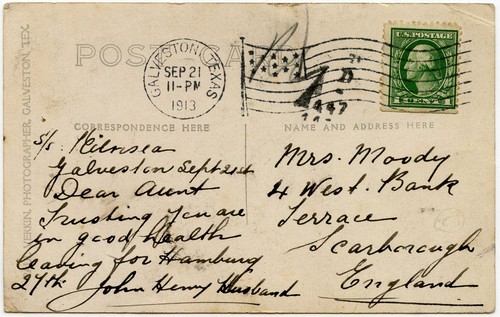 POST CARD
GALVESTON, TEXAS
SEP 21
11-PM
1913
U.S. POSTAGE
1 CENT 1
VERKIN, PHOTOGRAPHER, GALVESTON, TEX.
CORRESPONDENCE HERE
S/S. Kilnsea
Galveston Sept 21st
Dear Aunt
Trusting you are
in good health
leaving for Hamburg
27th. John Henry Husband
NAME AND ADDRESS HERE
Mrs. Moody
4 West. Bank
Terrace
Scarborough
England